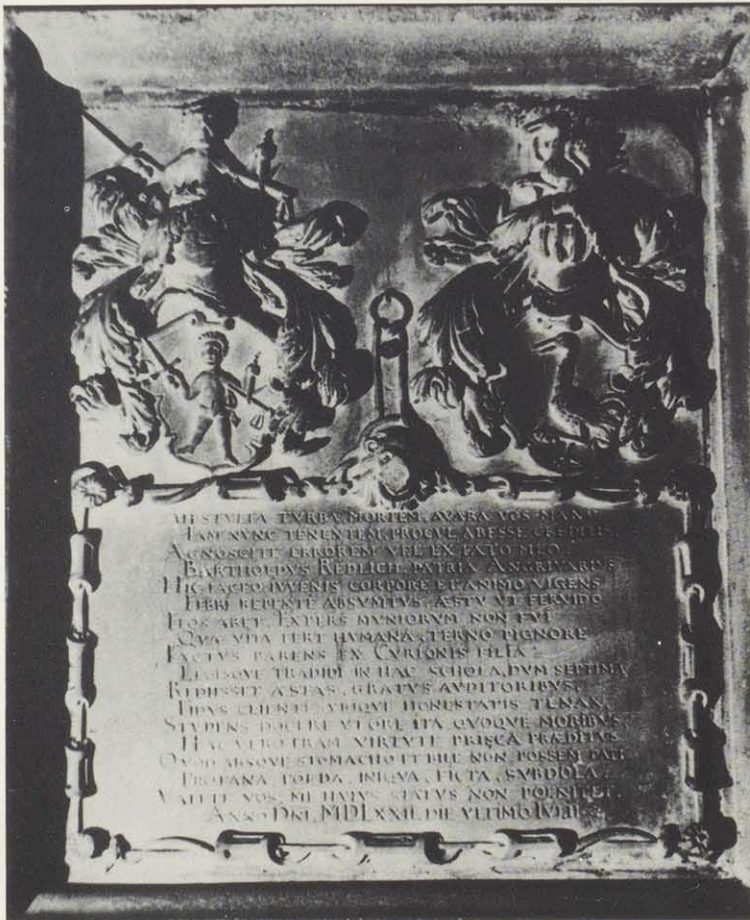 AH STVLTA TVRBA, MORTEM, AVARA VOS MANV
IAM NVNC TENENTEM, PROCVL ABESSE CREDITIS.
AGNOSCITE ERROREM VEL EX FATO MEO.
BARTHOLDVS REDLICH, PATRIA ANGRIVARIVS
HIC IACEO, IVVENIS CORPORE ET ANIMO VIGENS
FEBRI REPENTE ABSVMTVS, ÆSTV VT FERVIDO
FLOS ARET. EXPERS MVNIORVM NON FVI
QVÆ VITA FERT HVMANA, TERNO PIGNORE
FACTVS PARENS EX CVRIONIS FILIA.
LEGESQVE TRADIDI IN HAC SCHOLA, DVM SEPTIMA
REDIISSET ÆSTAS, GRATVS AVDITORIBVS,
FIDVS CLIENTI, VBIQVE HONESTATIS TENAX,
STVDENS DOCERE VT ORE, ITA QVOQVE MORIBVS.
HAC VERO ERAM VIRTVTE PRISCA PRÆDITVS
QVOD ABSQVE STOMACHO ET BILE NON POSSEM PATI
PROFANA, FOEDA, INIQVA, FICTA, SVBDOLA.
VALETE VOS, ME HVIVS STATVS NON POENITET.
ANNO DNI. MDLXXII. DIE VLTIMO IVLII